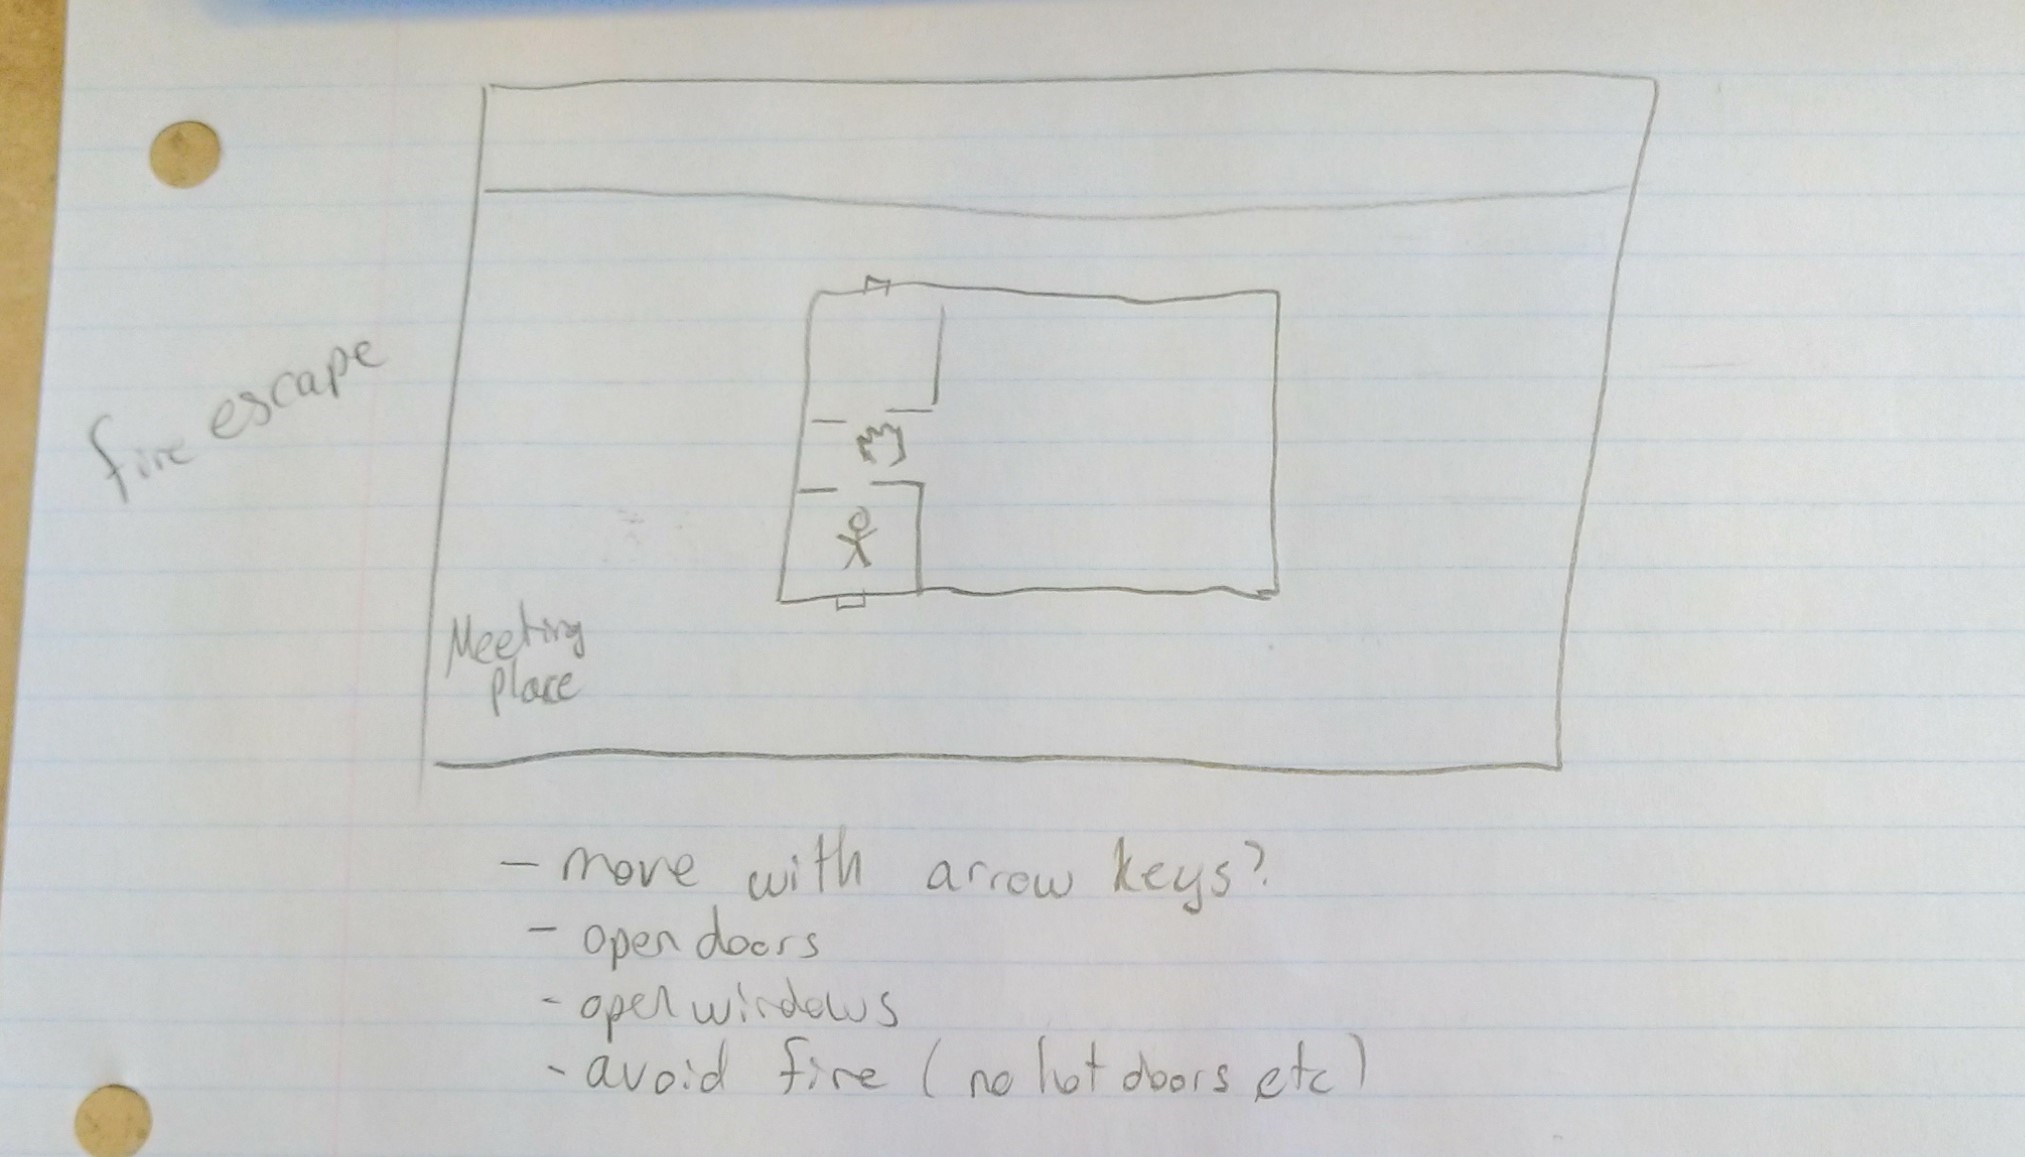 fire escape
Meeting
place
- move with arrow keys?
- open doors
- open windows
- avoid fire (no hot doors etc)